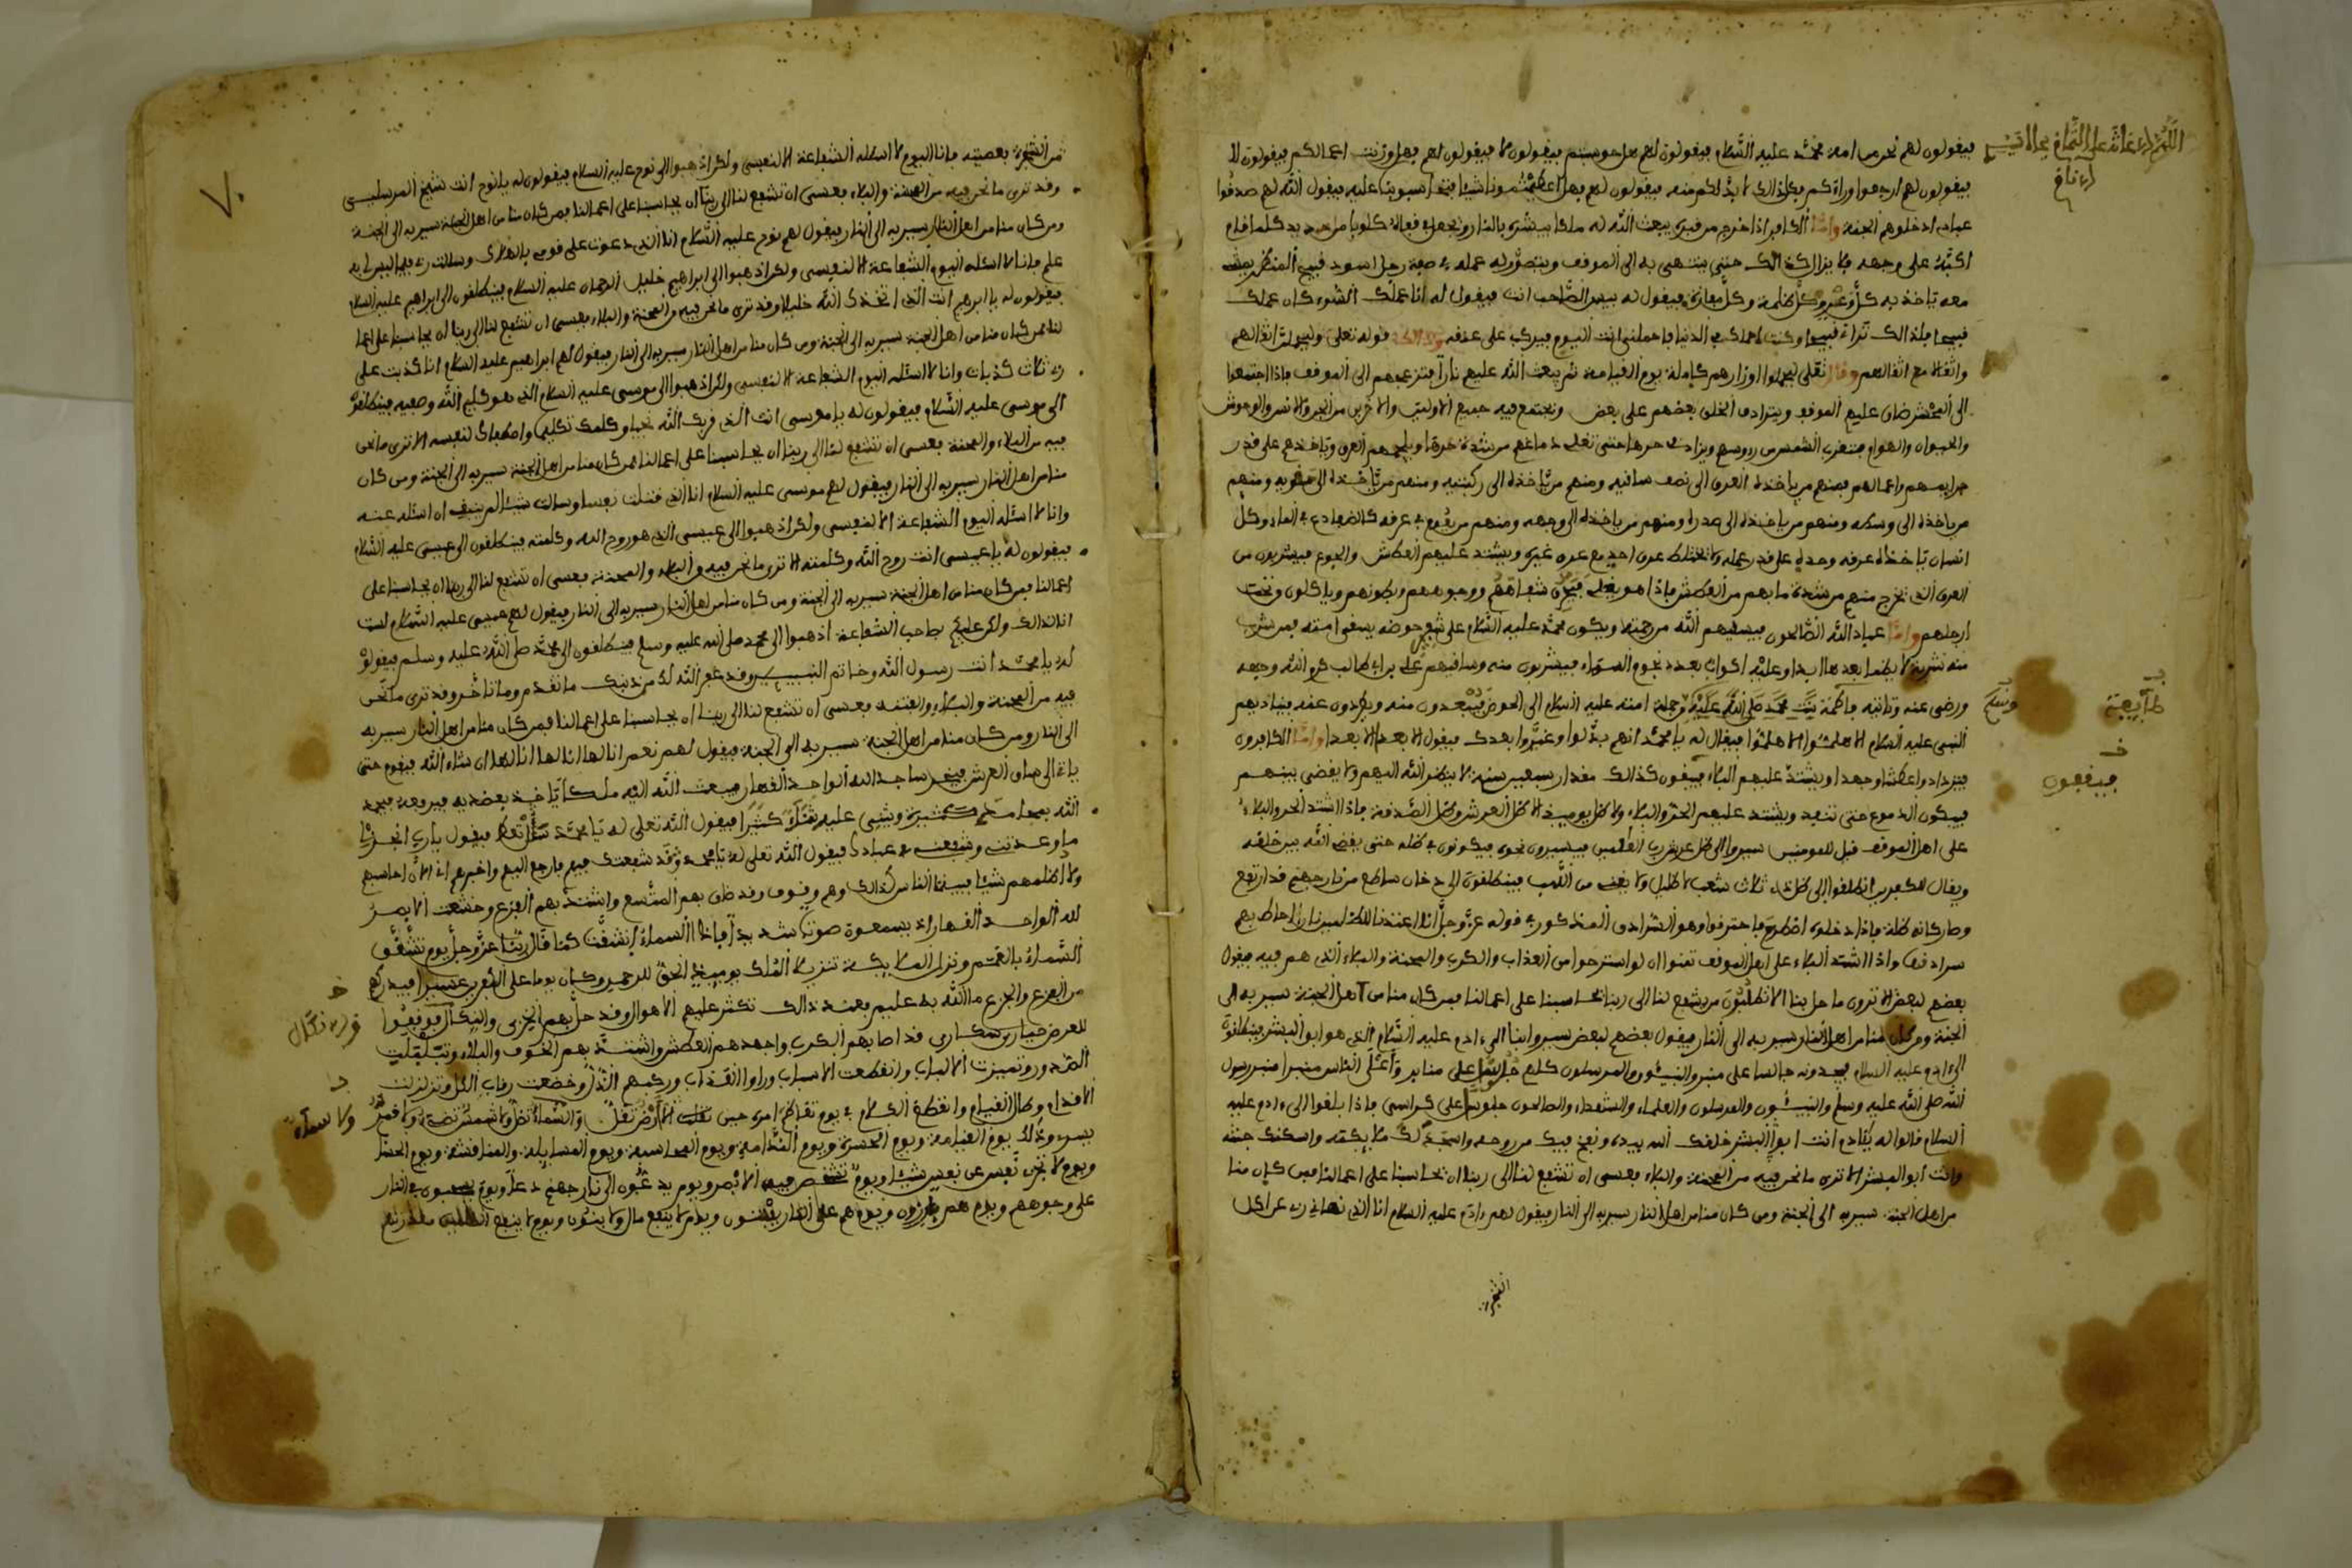 فيقولون لهم نحن من امة محمد عليه السلام فيقولون لهم هل حوسبتم فيقولون لا فيقولون لهم فهل وزنت اعمالكم فيقولون لا
فيقولون لهم ارجعوا وراءكم فكل ذالك لا بد لكم منه فيقولون لهم فهل اعطيتمونا شيئا فتحاسبونا عليه فيقول الله لهم صدقوا
عبادي ادخلوهم الجنة واما الكافر اذا خرج من قبره يبعث الله له ملكا يبشره بالنار
اكبه على وجهه فلا يزال كذالك حتى ينتهي به الى الموقف ويتصور له عمله في صفة رجل اسود قبيح المنظر
فيقول له بيس الصاحب انت فيقول له انا عملك السوء كان عملك
قبيحا فلذالك تراه قبيحا وكنت احملك في الدنيا فاحملني انت اليوم فيركب على عنقه وذالك قوله تعلى وليحملن اثقالهم
واثقالا مع اثقالهم وقال تعلى ليحملوا اوزارهم كاملة يوم القيامة ثم يبعث الله عليهم نارا فتزعجهم الى الموقف فاذا اجتمعوا
الى المحشر ضاق عليهم الموقف ويترادف الخلق بعضهم على بعض ويجتمع فيه جميع الاولين والاخرين من الجن والانس والوحوش
والحيوان والهوام فتقرب الشمس من رءوسهم ويزاد في حرها حتى تغلي دماغهم من شدة حرها ويلجمهم العرق وياخذهم على قدر
جرايمهم واعمالهم فمنهم من ياخذه العرق الى نصف ساقيه ومنهم من ياخذه الى ركبتيه ومنهم من ياخذه الى حقويه ومنهم
من ياخذه الى وسطه ومنهم من ياخذه الى صدره ومنهم من ياخذه الى وجهه ومنهم من يعوم في عرقه كالضفادع في الماء وكل
انسان ياخذه عرقه وحده على قدر عمله ولا يختلط عرق احد مع عرق غيره ويشتد عليهم العطش والجوع فيشربون من
العرق الذي يخرج منهم من شدة ما بهم من العطش فاذا هو يغلي
ارجلهم واما عباد الله الصالحون فيسقيهم الله من رحمته ويكون محمد عليه السلام على شفير حوضه يسقي امته فمن شرب
منه شربة لا يظما بعدها ابدا وعليه اكواب بعدد نجوم السماء فيشربون منه وساقيهم علي بن ابي طالب كرم الله وجهه
ورضي عنه وثانيه فاطمة بنت محمد صلى الله عليه وجملة امته عليه السلام الى الحوض فيبعدون منه ويطردون عنه فيناديهم
النبي عليه السلام الا هلموا الا هلموا فيقال له يا محمد انهم بدلوا وغيروا بعدك فيقول الا بعدا الا بعدا واما الكافرون
فيزدادوا عطشا وجهدا ويشتد عليهم البلاء فيبقون كذالك مقدار سبعين سنة لا ينظر الله اليهم ولا يقضي بينهم
فيبكون الدموع حتى تنفد ويشتد عليهم الحر والبلاء ولا ظل يوميذ الا ظل العرش وظل الصدقة فاذا اشتد الحر والبلاء
على اهل الموقف قيل للمومنين سيروا الى ظل عرش رب العلمين فيسيرون نحوه فيكونون في ظله حتى يقضي الله بين خلقه
ويقال للكفرين انطلقوا الى ظل ذي ثلاث شعب لا ظليل ولا يغني من اللهب فينطلقون الى دخان ساطع من نار جهنم قد ارتفع
وصار كانه ظلة فاذا دخلوه اضطرم فاحترقوا وهو السرادق المذكور في قوله عز وجل انا اعتدنا للظالمين نارا احاط بهم
سرادقها واذا اشتد البلاء على اهل الموقف تمنوا ان لو استرحوا من العذاب والكرب والمحنة والبلاء الذي هم فيه فيقول
بعضهم لبعض الا ترون ما حل بنا الا تطلبون من يشفع لنا الى ربنا يحاسبنا على اعمالنا فمن كان منا من اهل الجنة سير به الى
الجنة ومن كان منا من اهل النار سير به الى النار فيقول بعضهم لبعض سيروا بنا الى ءادم عليه السلام الذي هو ابو البشر فينطلقون
الى ءادم عليه السلام فيجدونه جالسا على منبر والنبيئون والمرسلون كلهم جلوسا على منابر واعلى الناس منبرا منبر رسول
الله صلى الله عليه وسلم والنبيئون والمرسلون والعلماء والشهداء والصالحون جلوسا على كراسي فاذا بلغوا الى ءادم عليه
السلام قالوا له يئادم انت ابو البشر خلقك الله بيده ونفخ فيك من روحه واسجد لك ملايكته واسكنك جنته
وانت ابو البشر الا ترى ما نحن فيه من المحنة والبلاء فعسى ان تشفع لنا الى ربنا ان يحاسبنا على اعمالنا فمن كان منا
من اهل الجنة سير به الى الجنة ومن كان منا من اهل النار سير به الى النار فيقول لهم ءادم عليه السلام انا الذي نهاني ربي عن اكل
الشجرة
فيبقون
من الشجرة فعصيته فانا اليوم لا اسئله الشفاعة الا لنفسي ولكن اذهبوا الى نوح عليه السلام فيقولون له يا نوح انت شيخ المرسلين
وقد ترى ما نحن فيه من المحنة والبلاء فعسى ان تشفع لنا الى ربنا ان يحاسبنا على اعمالنا فمن كان منا من اهل الجنة سير به الى الجنة
ومن كان منا من اهل النار سير به الى النار فيقول لهم نوح عليه السلام انا الذي دعوت على قومي
علم فانا لا اسئله اليوم الشفاعة الا لنفسي ولكن اذهبوا الى ابراهيم خليل الرحمان عليه السلام فينطلقون الى ابراهيم عليه السلام
فيقولون له يا ابرهيم انت الذي اتخذك الله خليلا وقد ترى ما نحن فيه من المحنة والبلاء فعسى ان تشفع لنا الى ربنا ان يحاسبنا على اعما
لنا فمن كان منا من اهل الجنة سير به الى الجنة ومن كان منا من اهل النار سير به الى النار فيقول لهم ابراهيم عليه السلام انا كذبت على
ربي ثلاث كذبات وانا لا اسئله اليوم الشفاعة الا لنفسي ولكن اذهبوا الى موسى عليه السلام الذي هو كليم الله وصفيه فينطلقون
الى موسى عليه السلام فيقولون له يا موسى انت الذي قربك الله نجيا وكلمك تكليما واصطفاك لنفسه الا ترى ما نحن
فيه من البلاء والمحنة فعسى ان تشفع لنا الى ربنا ان يحاسبنا على اعمالنا فمن كان منا من اهل الجنة سير به الى الجنة ومن كان
منا من اهل النار سير به الى النار فيقول لهم موسى عليه السلام انا الذي قتلت نفسا وسالت شيئا لم ينبغ ان اسئله عنه
وانا لا اسئله اليوم الشفاعة الا لنفسي ولكن اذهبوا الى عيسى الذي هو روح الله وكلمته فينطلقون الى عيسى عليه السلام
فيقولون له يا عيسى انت روح الله وكلمته الا ترى ما نحن فيه من البلاء والمحنة فعسى ان تشفع لنا الى ربنا ان يحاسبنا على
اعمالنا فمن كان منا من اهل الجنة سير به الى الجنة ومن كان منا من اهل النار سير به الى النار فيقول لهم عيسى عليه السلام لست
انا لذالك ولكن عليكم بصاحب الشفاعة اذهبوا الى محمد صلى الله عليه وسلم فينطلقون الى محمد صلى الله عليه وسلم فيقولون
له يا محمد انت رسول الله وخاتم النبيين وقد غفر الله لك من ذنبك ما تقدم وما تاخر وقد ترى ما نحن
فيه من المحنة والبلاء والفتنة فعسى ان تشفع لنا الى ربنا ان يحاسبنا على اعمالنا فمن كان منا من اهل النار سير به
الى النار ومن كان منا من اهل الجنة سير به الى الجنة فيقول لهم نعم انا لها انا لها انا لها ان شاء الله فيقوم حتى
ياتي الى ساق العرش فيخر ساجدا لله الواحد القهار فيبعث الله اليه ملكا ياخذ بعضديه فيرفعه فيحمد
الله بمحامد كثيرة ويثني عليه ثناء كثيرا فيقول الله تعلى له يا محمد سل تعط فيقول يا رب انجز لي
ما وعدتني وشفعني في عبادك فيقول الله تعلى له يا محمد وقد شفعتك فيهم فارجع اليهم واخبرهم اني الان احاسبهم
ولا اظلمهم شيئا فبينما الناس كذالك وهم وقوف وقد ضاق بهم المتسع واشتد بهم الفزع وخشعت الابصر
لله الواحد القهار اذ يسمعون صوتا شديدا فاذا السماء انشقت كما قال ربنا عز وجل يوم تشقق
السماء بالغمم ونزل الملايكة تنزيلا الملك يوميذ الحق للرحمن وكان يوما على الكفرين عسيرا فيدركهم
من الفزع والجزع ما الله به عليم فعند ذالك تكثر عليهم الاهوال وقد حل بهم الخزي والنكال فوقفوا
للعرض حيارى سكارى قد اصابهم الكرب واجهدهم العطش واشتد بهم الخوف والبلاء وتبلبلت
الصدور وتميزت الالباب وانقطعت الاسباب وراوا العذاب وركبهم الذل وخضعت رقاب الكل وتزلزلت
الاقدام وطال القيام وانقطع الكلام
يسرى وذلك يوم القيامة ويوم الحسرة ويوم الندامة ويوم المحاسبة ويوم المسايلة والمناقشة ويوم
ويوم لا تجزى نفس عن نفس شيئا ويوم تشخص فيه الابصر ويوم يدعون الى نار جهنم دعا ويوم يسحبون في النار
على وجوههم ويوم هم بارزون ويوم هم على النار يفتنون ويوم لا ينفع مال ولا بنون ويوم لا ينفع الظلمين معذرتهم
ولا سماء
٧٠